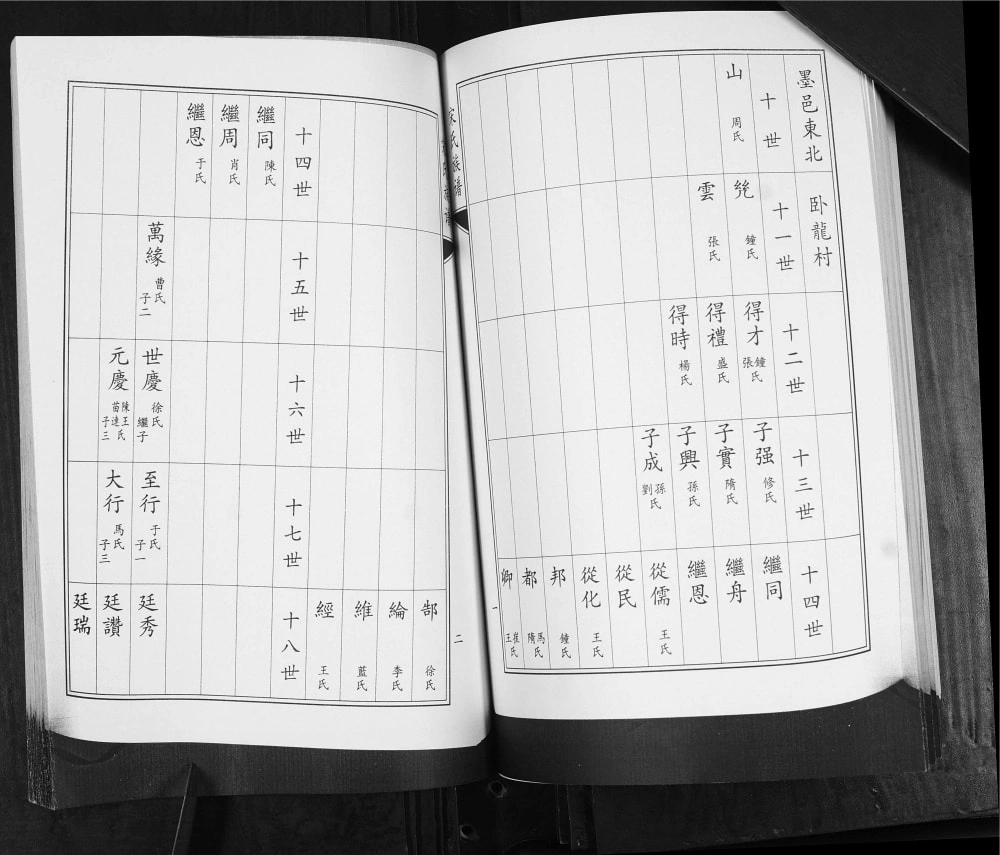 墨邑東北 卧龍村
十世
山 周氏
十一世
鐘氏
雲 張氏
十二世
得才 鐘張氏
得禮 盛氏
得時 楊氏
十三世
子强 修氏
子實 隋氏
子興 孫氏
子成 孫劉氏
十四世
繼同
繼舟
繼恩
從儒 王氏
從民
從化 王氏
邦 鐘氏
都 馬隋氏
卿 崔王氏
一
氏族譜
二
郜 徐氏
綸 李氏
維 藍氏
經 王氏
十四世
繼同 陳氏
繼周 肖氏
繼恩 于氏
十五世
萬緣 曹氏 子二
十六世
世慶 徐氏 繼子
元慶 陳王苗達氏 子三
十七世
至行 于氏 子一
大行 馬氏 子三
十八世
廷秀
廷讚
廷瑞